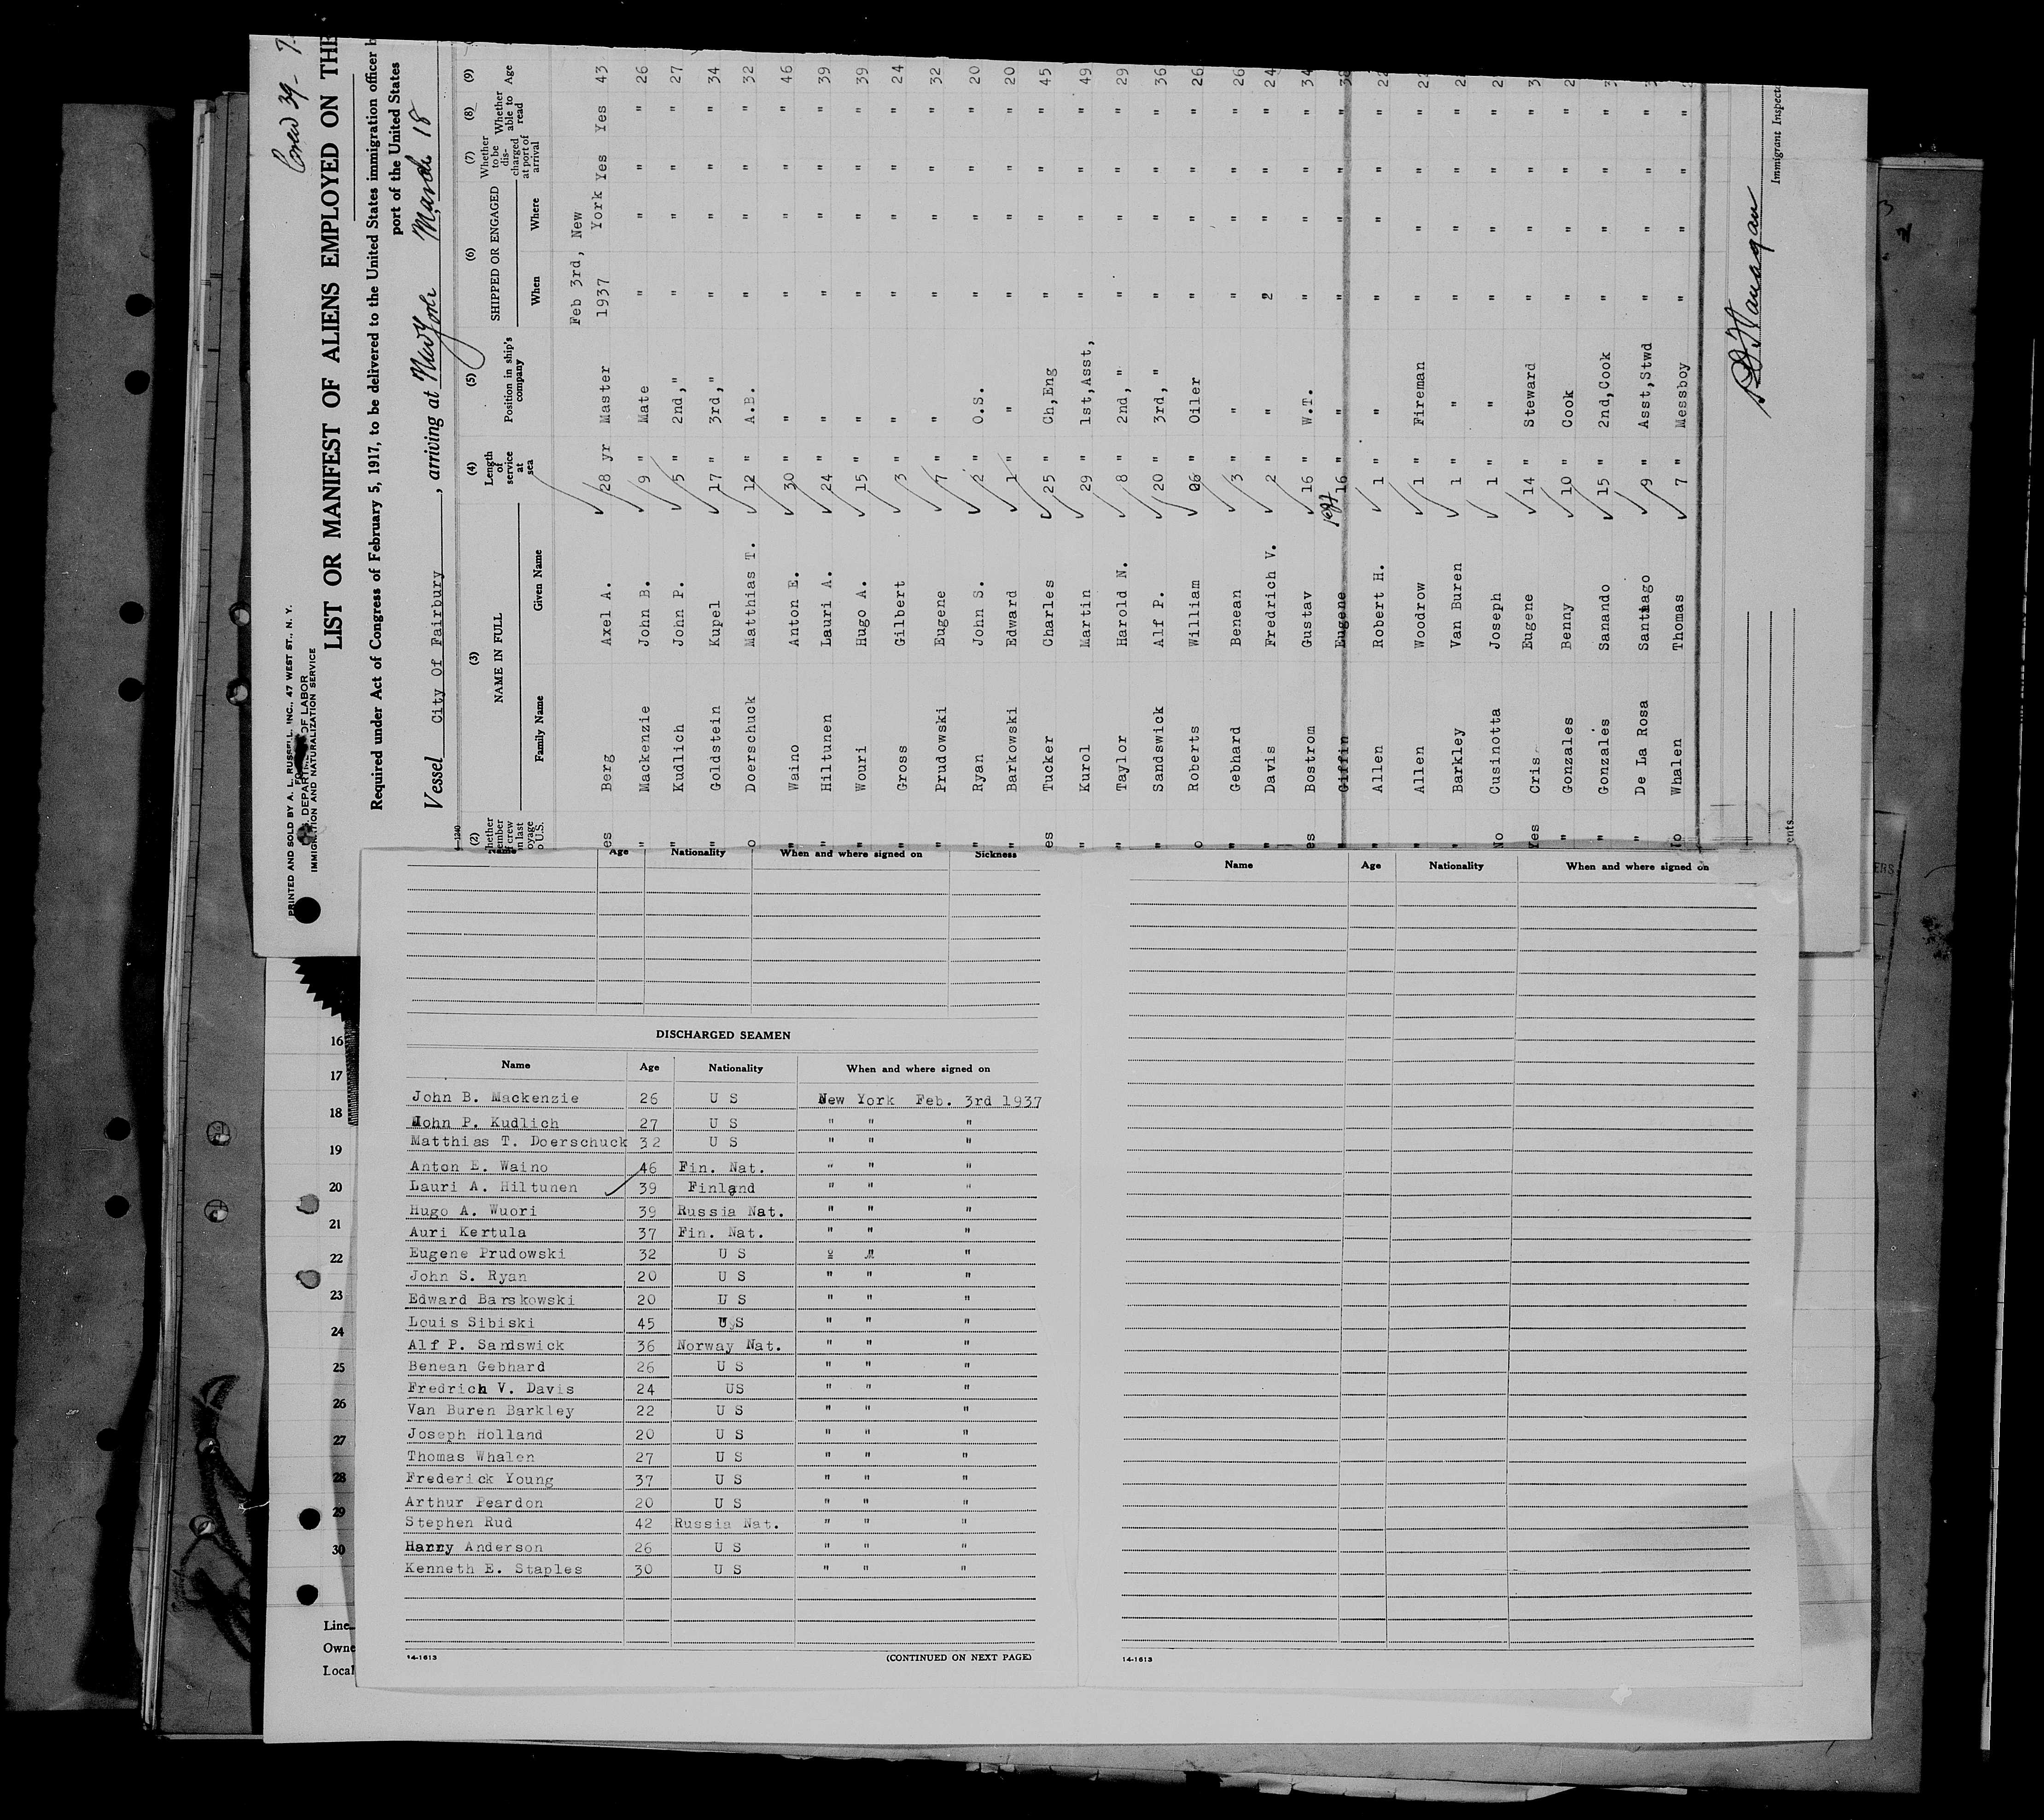 Crew 39
PRINTED AND SOLD BY A. L. RUSSELL, INC., 47 WEST ST., N. Y.
DEPARTMENT OF LABOR
IMMIGRATION AND NATURALIZATION SERVICE
LIST OR MANIFEST OF ALIENS EMPLOYED ON THE
Required under Act of Congress of February 5, 1917, to be delivered to the United States immigration officer
port of the United States
Vessel City Of Fairbury, arriving at New York March 18
(2) (3) (4) (5) (6) (7) (8) (9)
NAME IN FULL Length of service at sea Position in ship's company SHIPPED OR ENGAGED Whether to be discharged at port of arrival Whether able to read Age
Family Name Given Name When Where
Feb 3rd, New
Berg Axel A. 28 yr Master 1937 York Yes Yes 43
" Mackenzie John B. 9 " Mate " " " " 26
" Kudlich John P. 5 " 2nd, " " " " " 27
" Goldstein Kupel 17 " 3rd, " " " " " 34
Doerschuck Matthias T. 12 " A.B. " " " " 32
" Waino Anton E. 30 " " " " " " 46
" Hiltunen Lauri A. 24 " " " " " " 39
" Wouri Hugo A. 15 " " " " " " 39
" Gross Gilbert 3 " " " " " " 24
" Prudowski Eugene 7 " " " " " " 32
" Ryan John S. 2 " O.S. " " " " 20
" Barkowski Edward 1 " " " " " " 20
Tucker Charles 25 " Ch,Eng " " " " 45
" Kurol Martin 29 " 1st,Asst, " " " " 49
" Taylor Harold N. 8 " 2nd, " " " " " 29
" Sandswick Alf P. 20 " 3rd, " " " " " 36
Roberts William 06 " Oiler " " " " 26
" Gebhard Benean 3 " " " " " " 26
" Davis Fredrich V. 2 " " 2 " " " 24
Bostrom Gustav 16 " W.T. " " " " 34
" Giffin Eugene 16 " " " " " " 38
" Allen Robert H. 1 " " " " " " 22
" Allen Woodrow 1 " Fireman " " " "
" Barkley Van Buren 1 " " " " " "
No Cusinotta Joseph 1 " " " " " "
Yes Cris Eugene 14 " Steward " " " "
" Gonzales Benny 10 " Cook " " " "
" Gonzales Sanando 15 " 2nd,Cook " " " "
" De La Rosa Santiago 9 " Asst,Stwd " " " "
No Whalen Thomas 7 " Messboy " " " "
Immigrant Inspector
Name Age Nationality When and where signed on Sickness
Name Age Nationality When and where signed on
DISCHARGED SEAMEN
Name Age Nationality When and where signed on
John B. Mackenzie 26 U S New York Feb. 3rd 1937
John P. Kudlich 27 U S " " "
Matthias T. Doerschuck 32 U S " " "
Anton E. Waino 46 Fin. Nat. " " "
Lauri A. Hiltunen 39 Finland " " "
Hugo A. Wuori 39 Russia Nat. " " "
Auri Kertula 37 Fin. Nat. " " "
Eugene Prudowski 32 U S " " "
John S. Ryan 20 U S " " "
Edward Barskowski 20 U S " " "
Louis Sibiski 45 U S " " "
Alf P. Sandswick 36 Norway Nat. " " "
Benean Gebhard 26 U S " " "
Fredrich V. Davis 24 US " " "
Van Buren Barkley 22 U S " " "
Joseph Holland 20 U S " " "
Thomas Whalen 27 U S " " "
Frederick Young 37 U S " " "
Arthur Peardon 20 U S " " "
Stephen Rud 42 Russia Nat. " " "
Harry Anderson 26 U S " " "
Kenneth E. Staples 30 U S " " "
14-1613 (CONTINUED ON NEXT PAGE)
14-1613
16
17
18
19
20
21
22
23
24
25
26
27
28
29
30
Line
Owne
Local